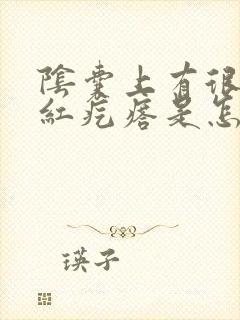 陰囊上有很
紅疙瘩是怎
瑛子